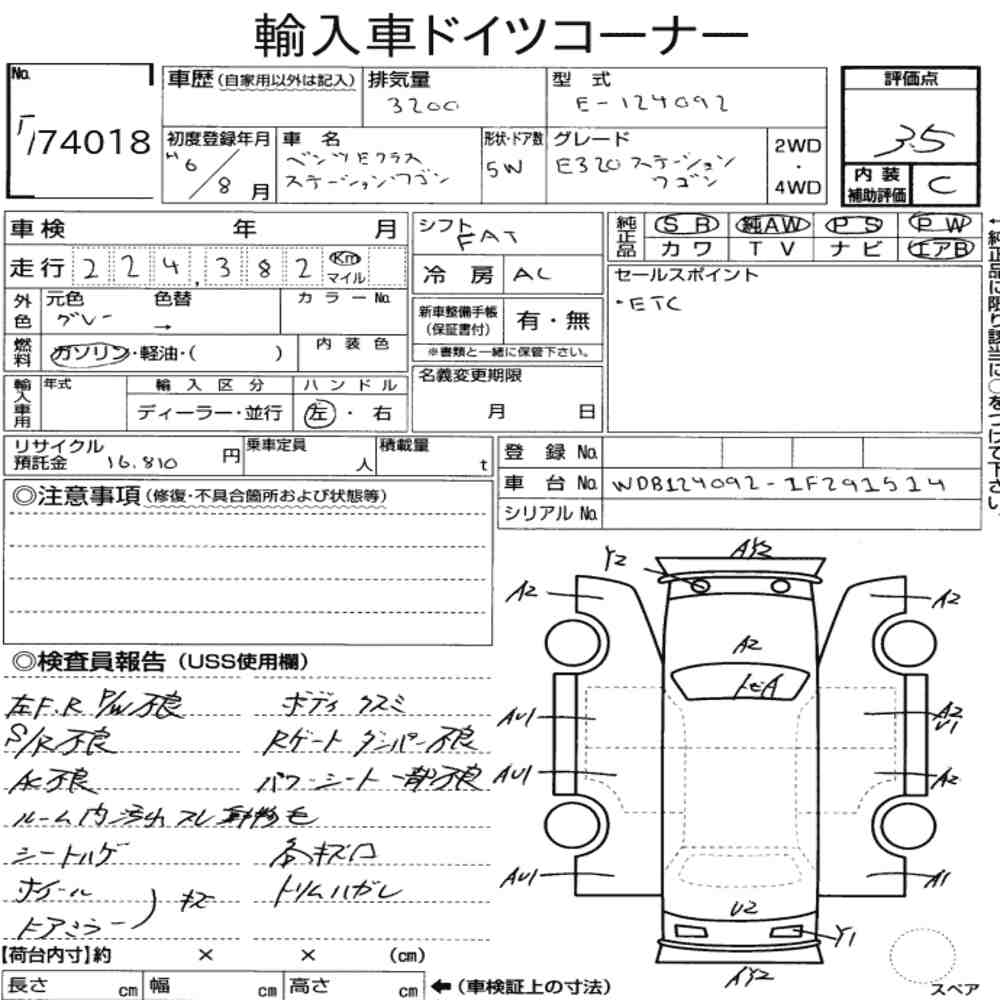 輸入車ドイツコーナー
No.
74018
車歴(自家用以外は記入)
排気量
3200
型 式
E-124092
評価点
3.5
初度登録年月
H6/8月
車 名
ベンツEクラス
ステーションワゴン
形状・ドア数
5W
グレード
E320ステーション
ワゴン
2WD
・
4WD
内 装
補助評価
C
車検 年 月
走行 224,382 Km
マイル
シフト
FAT
冷 房 AC
純正品
SR 純AW PS PW
カワ TV ナビ エアB
←純正品に限り該当に○をつけて下さい
セールスポイント
・ETC
外色
元色 色替 カラーNo.
グレー →
燃料
ガソリン・軽油・( )
内 装 色
新車整備手帳
(保証書付)
有・無
※書類と一緒に保管下さい。
輸入車用
年式
輸 入 区 分
ディーラー・並行
ハ ン ド ル
左 ・ 右
名義変更期限
月 日
リサイクル
預託金 16,810 円
乗車定員
人
積載量
t
登 録 No.
車 台 No. WDB124092-1F291514
シリアル No.
◎注意事項(修復・不具合箇所および状態等)
◎検査員報告(USS使用欄)
左F.R P/W不良
ボディ クスミ
S/R不良
Rゲート ダンパー不良
AC不良
パワーシート一部不良
ルーム内汚れ スレ 動物毛
シートハゲ
各キズ凹
ホイール
トリムハガレ
ドアミラー
) キズ
Y2
AY2
A2
A2
A2
AU1
A2
U1
AU1
A2
AU1
A1
U2
Y1
AY2
スペア
【荷台内寸】約 × × (cm)
長さ cm
幅 cm
高さ cm
←(車検証上の寸法)